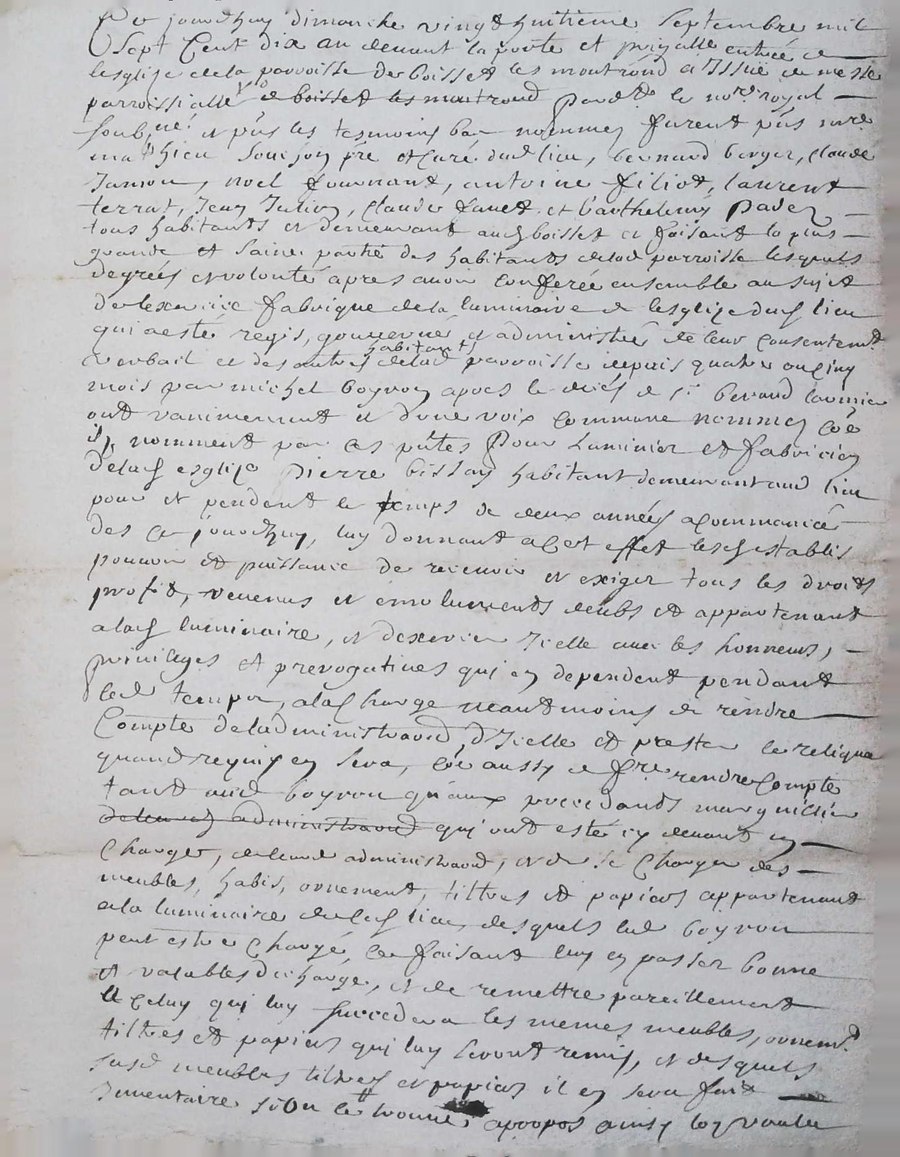 Ce jourdhuy dimanche vingt huitieme septembre mil
sept cent dix au devant la porte et prīpalle entrée de
lesglize de la parroisse de boisset les montrond a l'Issüe de messe
parroissialle de boisset les montrond Pard.t le no.re royal
soub.né et pñs les tesmoins bas nommez furent pñs m.re
mathieu pře et Curé dud lieu, bernard berger, Claude
Janion, noel fournand, antoine filiot, laurent
terrat, Jean Julien, Claude fauet et barthelemÿ Pader
tous habitants et demeurant aud boisset et faisant la plus
grande et saine partie des habitants de lad parroisse lesquels
degrées et volonté apres avoir conferée ensemble au sujet
de lexercice fabrique de la luminaire de lesglize dud lieu
qui a esté regis, gouverné et administré de leur consentem.t
verbail et des autres habitants de lad parroisse depuis quatre ou cinq
mois par michel boyron apres le decés de s.r beraud
ont unanimement et dune voix commune nommez cōe
ils nomment par ces pñtes Pour Luminier et fabricien
de lad esglize Pierre bissay habitant demeurant aud lieu
pour et pendent le temps de deux années a commancé
des ce jourdhuy, luy donnant a cet effet lesd establis
pouvoir et puissance de recevoir et exiger tous les droits
profit, revenus et emoluments deubs et appartenant
a lad luminaire, et dexercer Icelle avec les honneurs,
privilages et prerogatives qui en dependent pendant
led temps, a la Charge neantmoins de rendre
Compte de ladministraōn d'Icelle et prester le reliqua
quand requis en sera, cōe aussy de f.re rendre Compte
tant aud boyron qu'aux precedants marguillier
de leurd administraōn qui ont esté cy devant en
Charge, de leurd administraōn, et de se Charger des
meubles, habis, ornement, tiltres et papiers appartenant
a la luminaire dud lieu desquels led boyron
peut estre Chargé, luy en passer bonne
et valables décharge, et de remettre pareillement
a Celuy qui luy succedera les memes meubles, ornem.t
tiltres et papiers qui luy seront remis, et desquels
susd meubles tiltres et papiers il en sera fait
Inventaire si On le trouve apropos ainsy